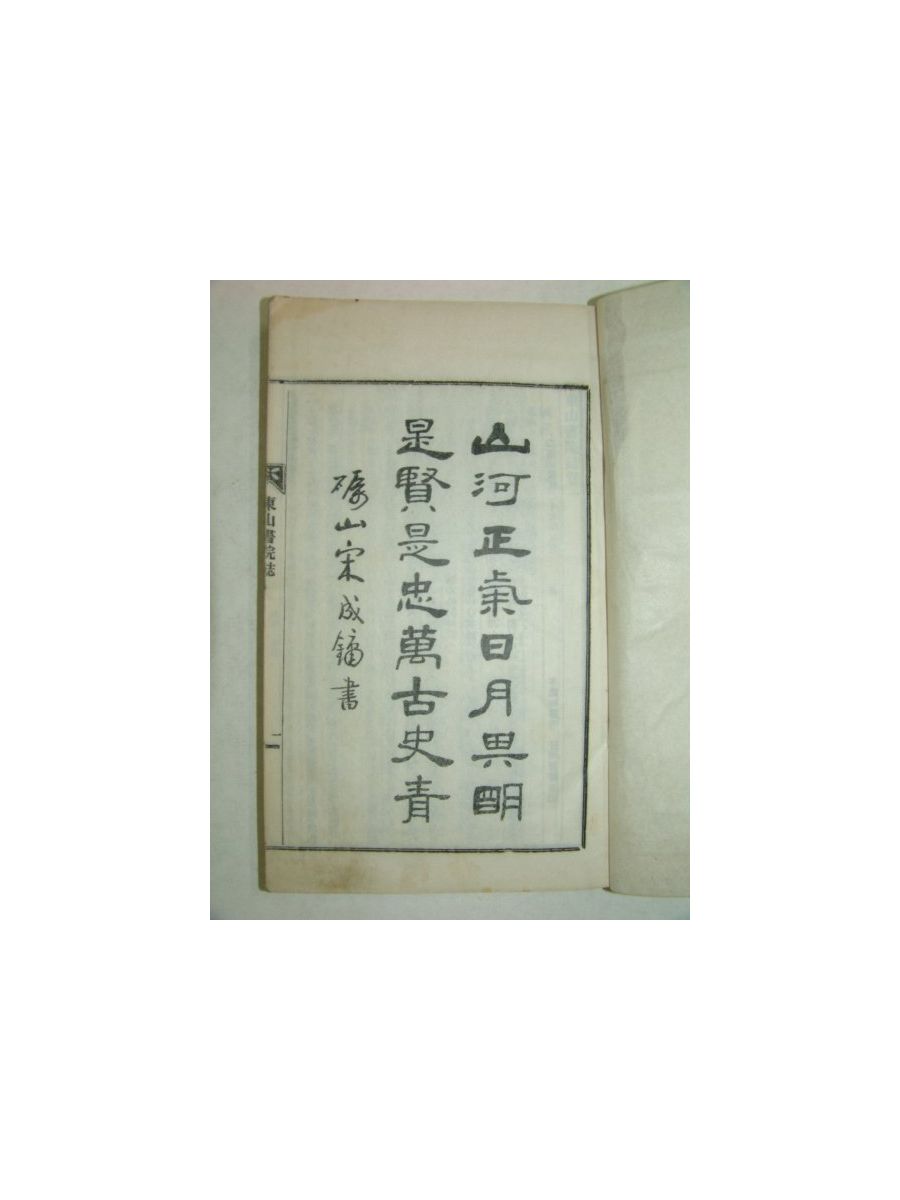 山河正氣日月昗明
是賢是忠萬古史青
礪山宋成鏞書
東山書院誌
二